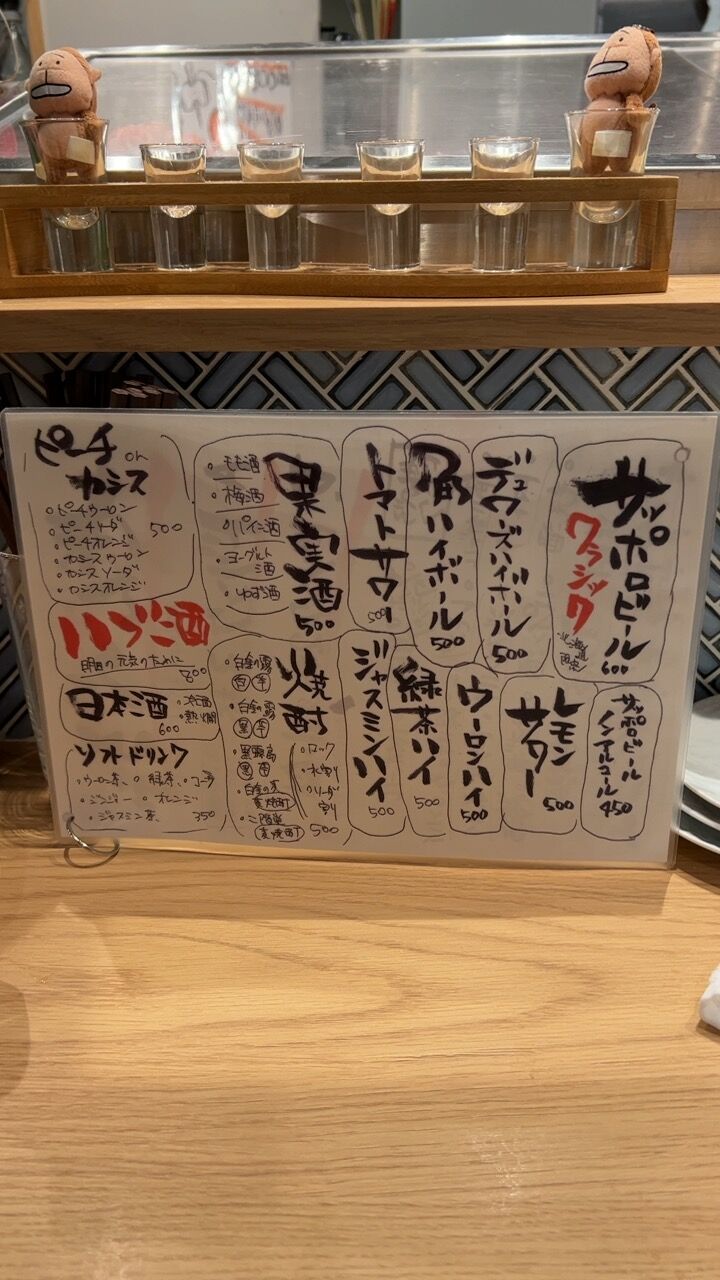 サッポロビール
クラシック
600
デュワーズハイボール
500
角ハイボール
500
トマトサワー
500
果実酒
500
・モモ酒
・梅酒
・パイン酒
・ヨーグルト酒
・ゆず酒
ピーチ or カシス
500
・ピーチウーロン
・ピーチソーダ
・ピーチオレンジ
・カシスウーロン
・カシスソーダ
・カシスオレンジ
サッポロビール
ノンアルコール
450
レモンサワー
500
ウーロンハイ
500
緑茶ハイ
500
ジャスミンハイ
500
焼酎
・白金の露 白 芋
・白金の露 黒 芋
・ロック
・水割り
・ソーダ割り
500
・二階堂 麦焼酎
ハブ酒
明日の元気のために
800
日本酒
・冷酒
・熱燗
600
ソフトドリンク
・ウーロン茶、・緑茶、・コーラ
・ジンジャー ・オレンジ
・ジャスミン茶 350